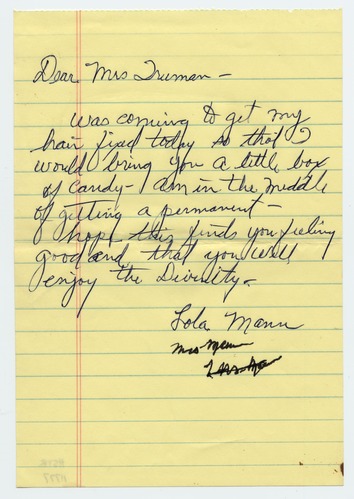 Dear Mrs Truman -
Was coming to get my
hair fixed today so that I
would bring you a little box
of candy - am in the middle
of getting a permanent -
hope this finds you feeling
good and that you will
enjoy the Divinity -
Lola Mann
Mrs Mann